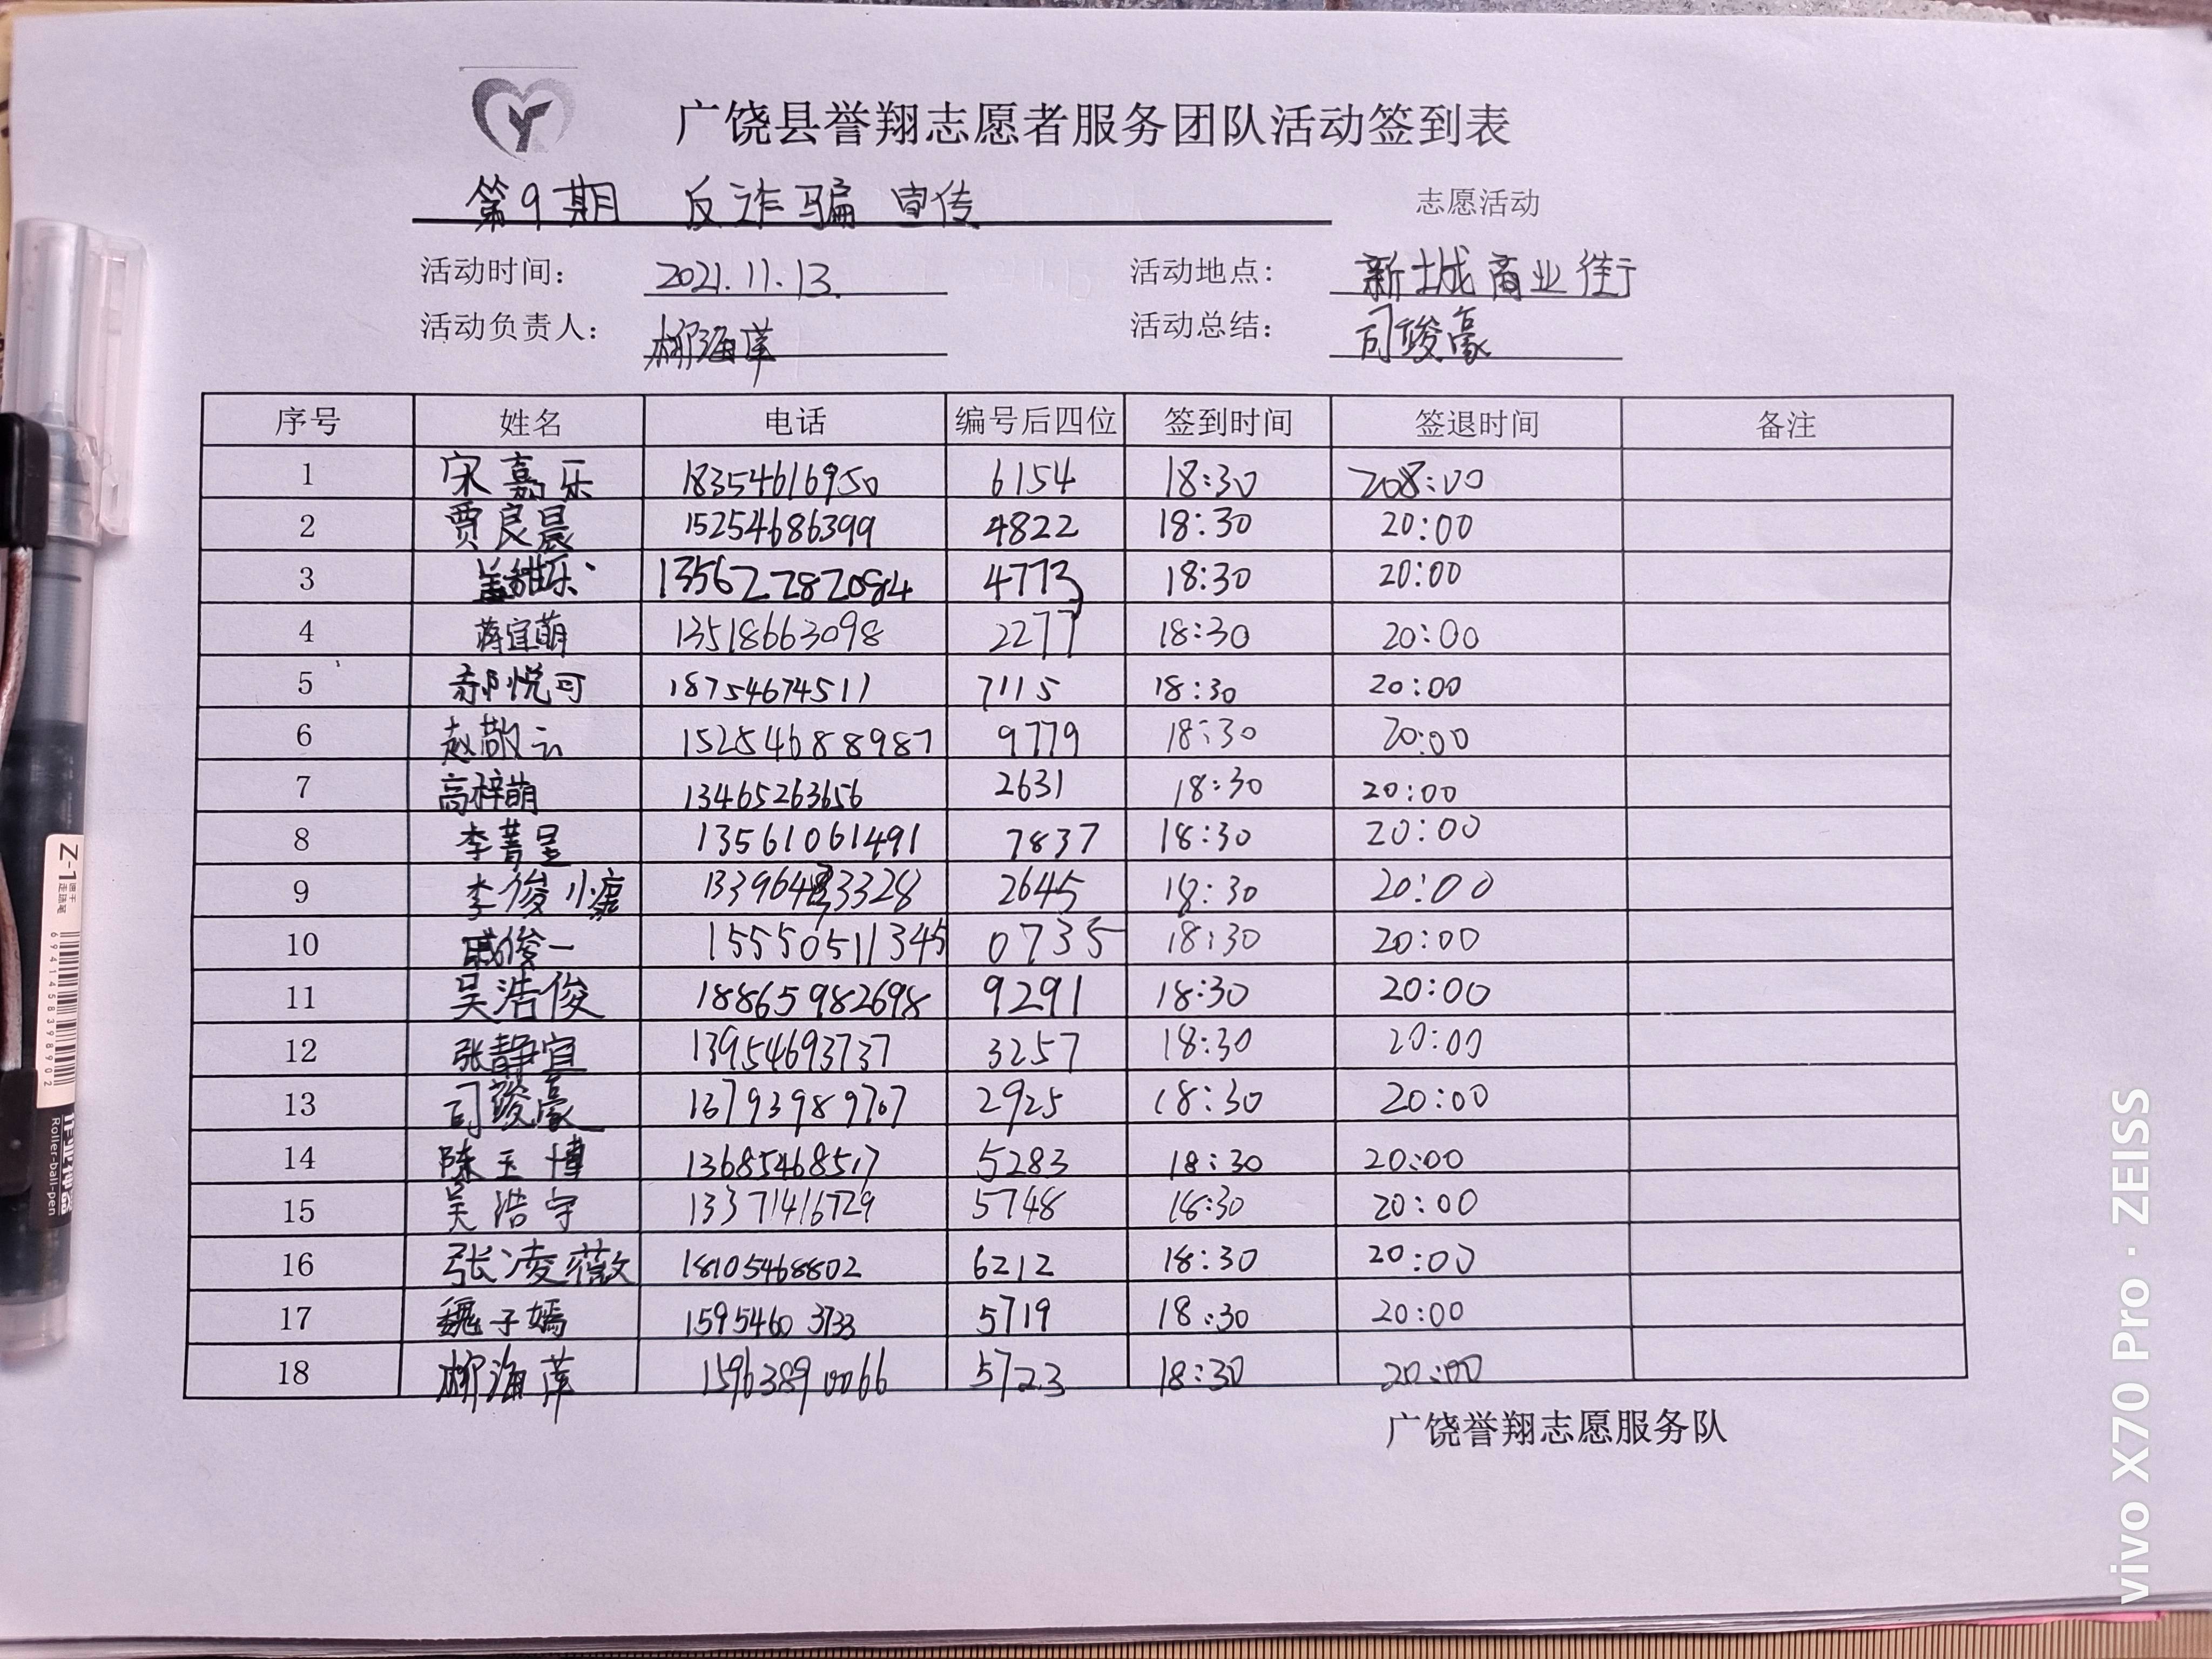 广饶县誉翔志愿者服务团队活动签到表
第9期 反诈骗宣传 志愿活动
活动时间: 2021.11.13. 活动地点: 新城商业街
活动负责人: 柳海萍 活动总结: 司竣豪
序号 姓名 电话 编号后四位 签到时间 签退时间 备注
1 宋嘉乐 18354616950 6154 18:30 208:00
2 贾良晨 15254686399 4822 18:30 20:00
3 盖甜乐 4773 18:30 20:00
4 蒋宜萌 13518663098 2277 18:30 20:00
5 郝悦可 18754674511 7115 18:30 20:00
6 赵敬云 15254688987 9779 18:30 20:00
7 高梓萌 13465263656 2631 18:30 20:00
8 李菁呈 13561061491 7837 18:30 20:00
9 李俊 2645 18:30 20:00
10 戚俊一 15550511345 0735 18:30 20:00
11 吴浩俊 18865982698 9291 18:30 20:00
12 张静宜 13954693737 3257 18:30 20:00
13 司竣豪 13793989767 2925 18:30 20:00
14 陈玉博 13685468517 5283 18:30 20:00
15 吴浩宇 13371416729 5748 18:30 20:00
16 张凌薇 18105468802 6212 18:30 20:00
17 魏子嫣 15954603733 5719 18:30 20:00
18 柳海萍 15963890066 5723 18:30 20:00
广饶誉翔志愿服务队
Z-1
速干
走珠笔
6941458398902
作业神器
Roller-ball-pen
vivo X70 Pro · ZEISS